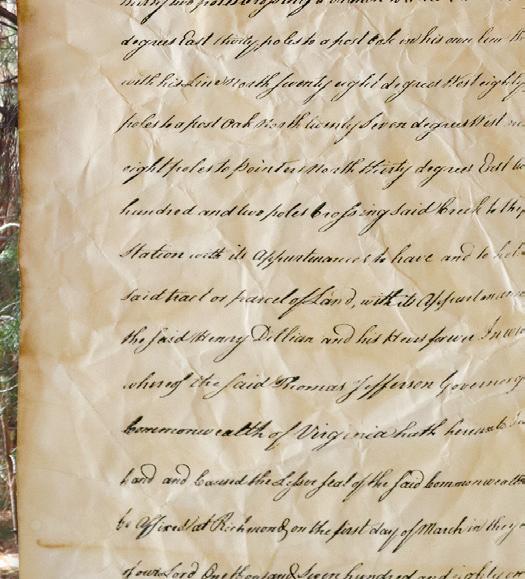 degrees East thirty poles to a post Oak in his own line
with his Line North Seventy eight degrees West eighty
poles to a post Oak North twenty Seven degrees West
eight poles to Pointers North thirty degrees East
hundred and two poles Crossing said Creek to the
Station with its Appurtenances to have and to hold
said tract or parcel of Land, with its Appurtenances
the said Henry Dillian and his Heirs forever In
whereof the said Thomas Jefferson Governor of
Commonwealth of Virginia hath hereunto
hand and Caused the Lesser Seal of the said Commonwealth
be Affixed at Richmond, on the first day of March in the
of our Lord One thousand Seven hundred and eighty